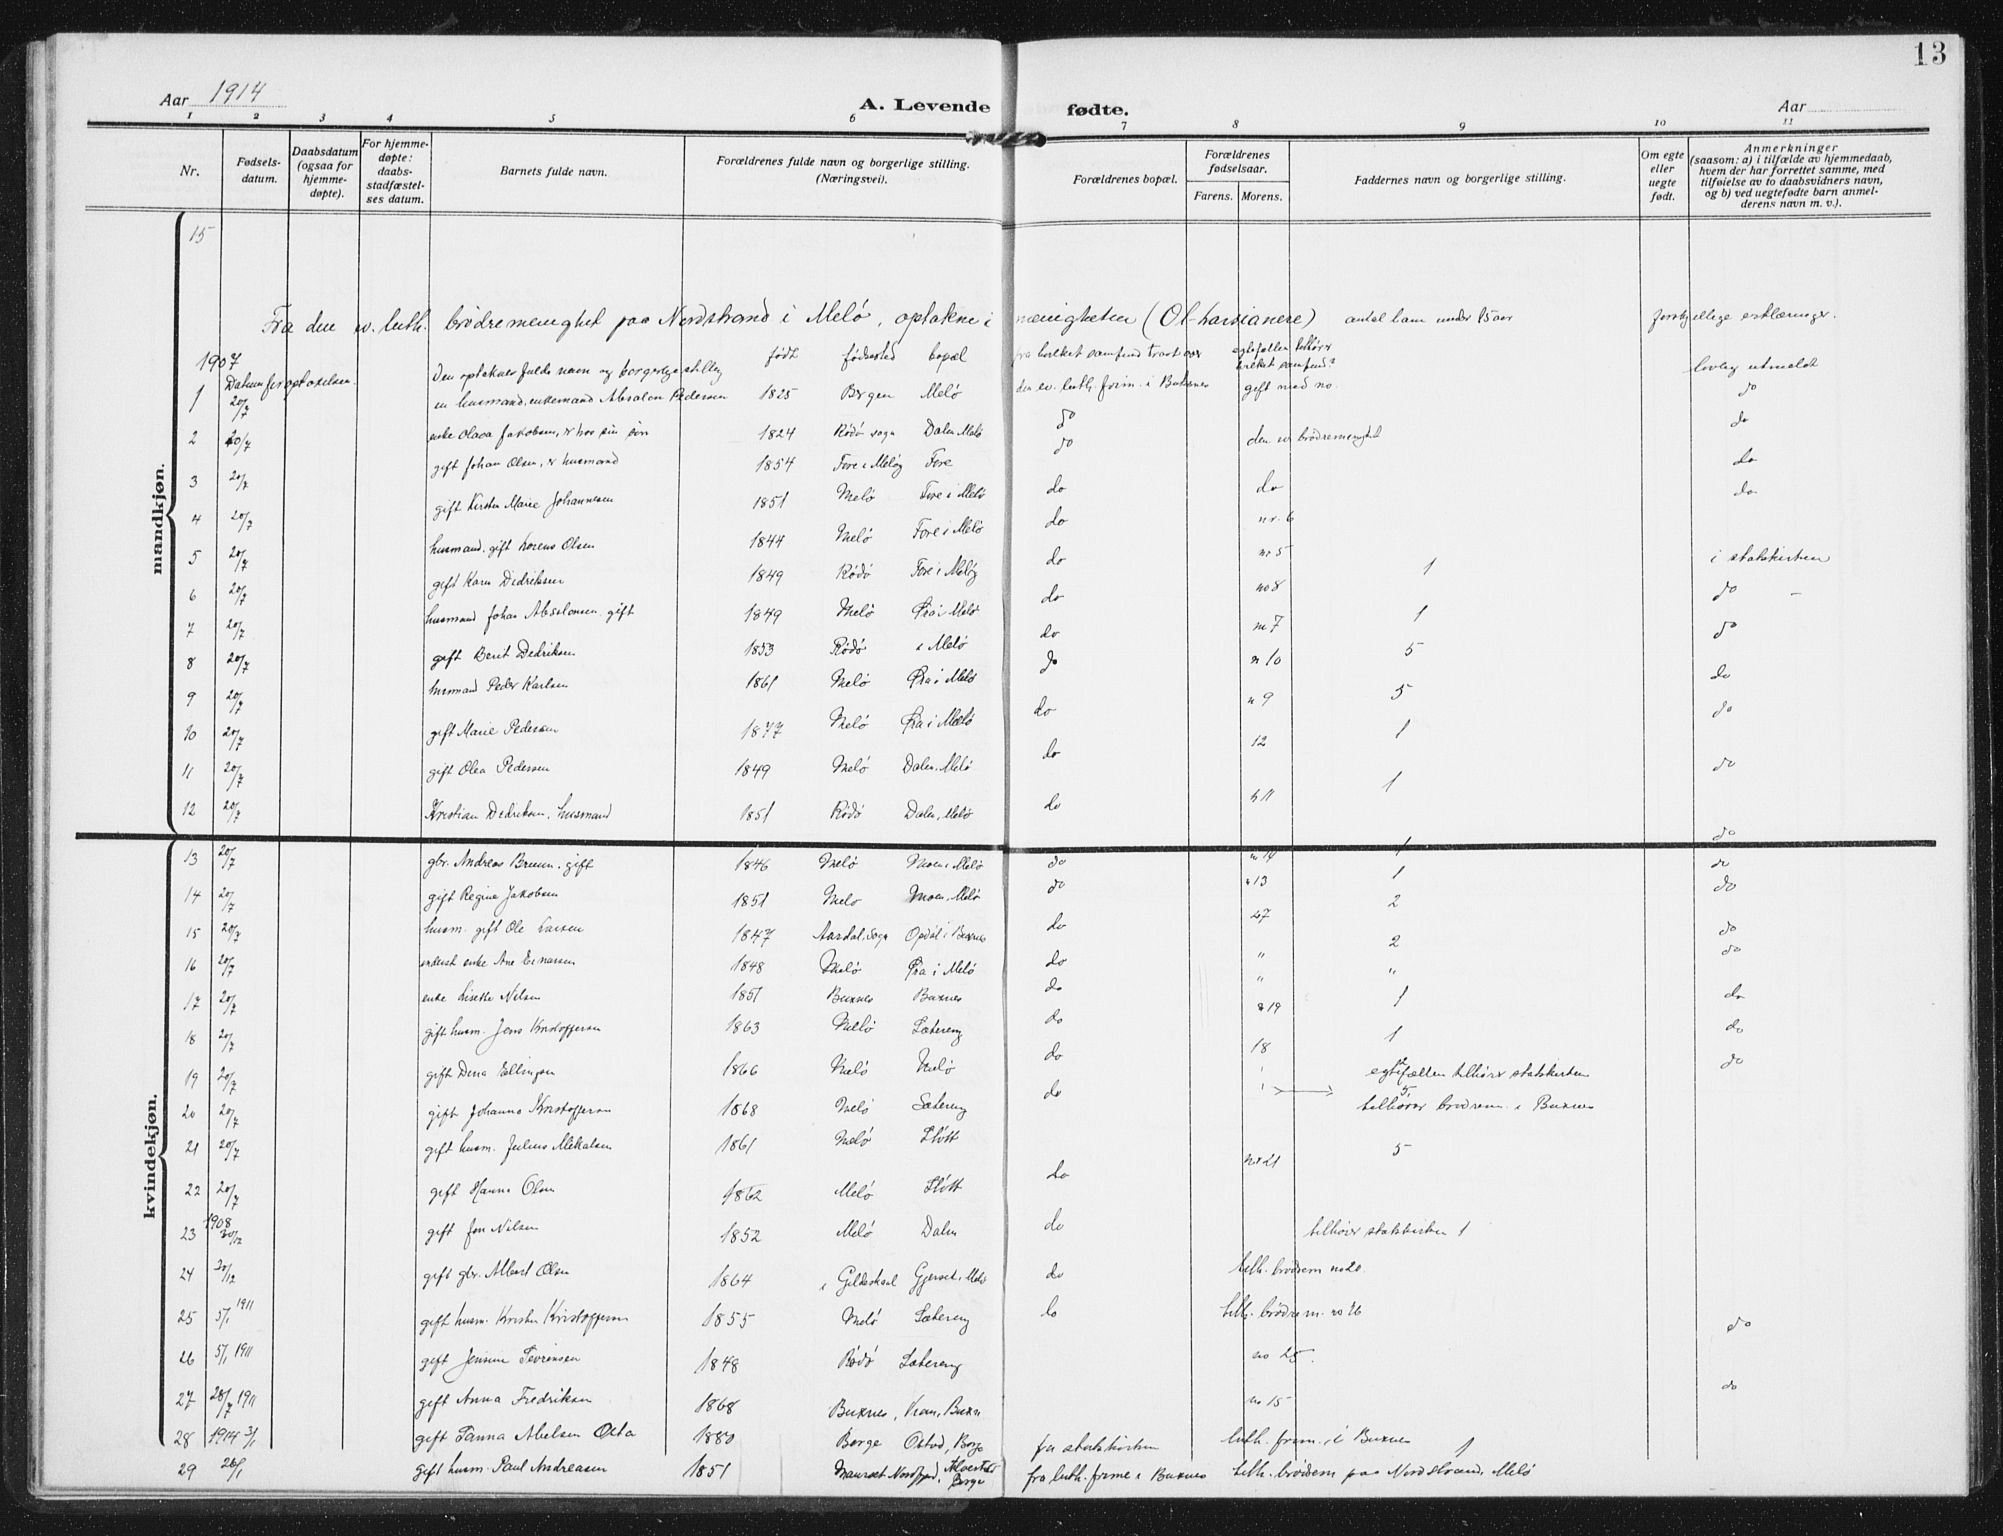 13
Aar 1914
A. Levende fødte.
Aar
1 2 3 4 5 6 7 8 9 10 11
Nr. Fødsels-datum. Daabsdatum (ogsaa for hjemme-døpte). For hjemme-døpte: daabs-stadfæstel-ses datum. Barnets fulde navn. Forældrenes fulde navn og borgerlige stilling. (Næringsvei). Forældrenes bopæl. Forældrenes fødselsaar. Farens. Morens. Faddernes navn og borgerlige stilling. Om egte eller uegte født. Anmerkninger (saasom: a) i tilfælde av hjemmedaab, hvem der har forrettet samme, med tilføielse av to daabsvidners navn, og b) ved uegtefødte barn anmel-derens navn m. v.).
mandkjøn.
15
Fra den ev. luth. brödremenighet paa Nordstrand i Melö, optakne i menigheten antal barn under 15 aar
1907 født fødested bopæl fra hvilket samfund traot over egtefællen tilhører hvilket samfund?
Den optaknes fulde navn og borgerlige stilling lovlig utmeldt
1 20/7 en husmand, enkemand Absalon Pedersen 1825 Bergen Melö den ev. luth. frim. i Buksnes gift med no. do
2 20/7 enke Olava Jakobsen, er hos sin sön 1824 Rödö sogn Dalen Melö do do
3 20/7 gift Johan Olsen, er husmand 1854 Fore i Melöy Fore do den ev brödremenighet do
4 20/7 gift Kirsten Marie Johannesen 1851 Melö Fore i Melö do do do
5 20/7 husmand. gift Lorens Olsen 1844 Melö Fore i Melö do nr. 6
6 20/7 gift Karen Dedriksen 1849 Rödö Fore i Melöy do nr 5 1 i statskirken
7 20/7 husmand Johan Absalonsen gift 1849 Melö i Melö do no 8 1 do
8 20/7 gift Berit Dedriksen 1853 Rödö i Melö do nr 7 5 do
9 20/7 husmand Peder Karlsen 1861 Melö i Melö do nr 10 5 do
10 20/7 gift Marie Pedersen 1877 Melö i Melö do nr 9 1 do
11 20/7 gift Olea Pedersen 1849 Melö Dalen, Melö do 12 1 do
12 20/7 Kristian Dedriksen, husmand 1851 Rödö Dalen, Melö do nr 11 1 do
kvindekjøn.
13 20/7 gbr. Andreas Bruun. gift 1846 Melö Moen i Melö do nr 14 1 do
14 20/7 gift Regine Jakobsen 1851 Melö Moen, Melö do nr 13 2 do
15 20/7 husm. gift Ole Larsen 1847 Aardal, sogn Opdöl i Buxnes do 27 2 do
16 20/7 inderst enke Ane Einarsen 1848 Melö i Melö do " " do
17 20/7 enke Lisette Nilsen 1851 Buxnes Buxnes do " 1 do
18 20/7 gift husm. Jens Kristoffersen 1863 Melö Sætereng do nr 19 1 do
19 20/7 gift Dina Ellingsen 1866 Melö Melö do 18 egtefællen tilhörer statskirken do
20 20/7 gift Johanna Kristoffersen 1868 Melö Sætereng do tilhörer brödrem. i Buxnes
21 20/7 gift husm. Julius Mikalsen 1861 Melö Stött 5
22 20/7 gift Hanna Olsen 1862 Melö Stött do nr 21
23 1908 30/12 gift Jon Nilsen 1852 Melö Dalen do tilhörer statskirken 1
24 30/12 gift gbr. Albert Olsen 1864 i Gildeskaal Gjerset, Melö do luth. brödrem no 20.
25 5/1 1911 gift husm. Kristen Kristoffersen 1855 Melö Sætereng do luth. brödrem. no 26 do
26 5/1 1911 gift Jensine Sevrensen 1848 Rödö Sætereng no 25.
27 28/7 1911 gift Anna Fredriksen 1868 Buxnes, no 15 do
28 1914 3/1 gift Abelsen 1880 Borge Borge fra statskirken luth. frim. i Buxnes 1
29 26/1 gift husm. Paul Andreasen 1851 Nordfjord, Borge fra luth. frime i Buxnes luth. brödrem paa Nordstrand, Melö